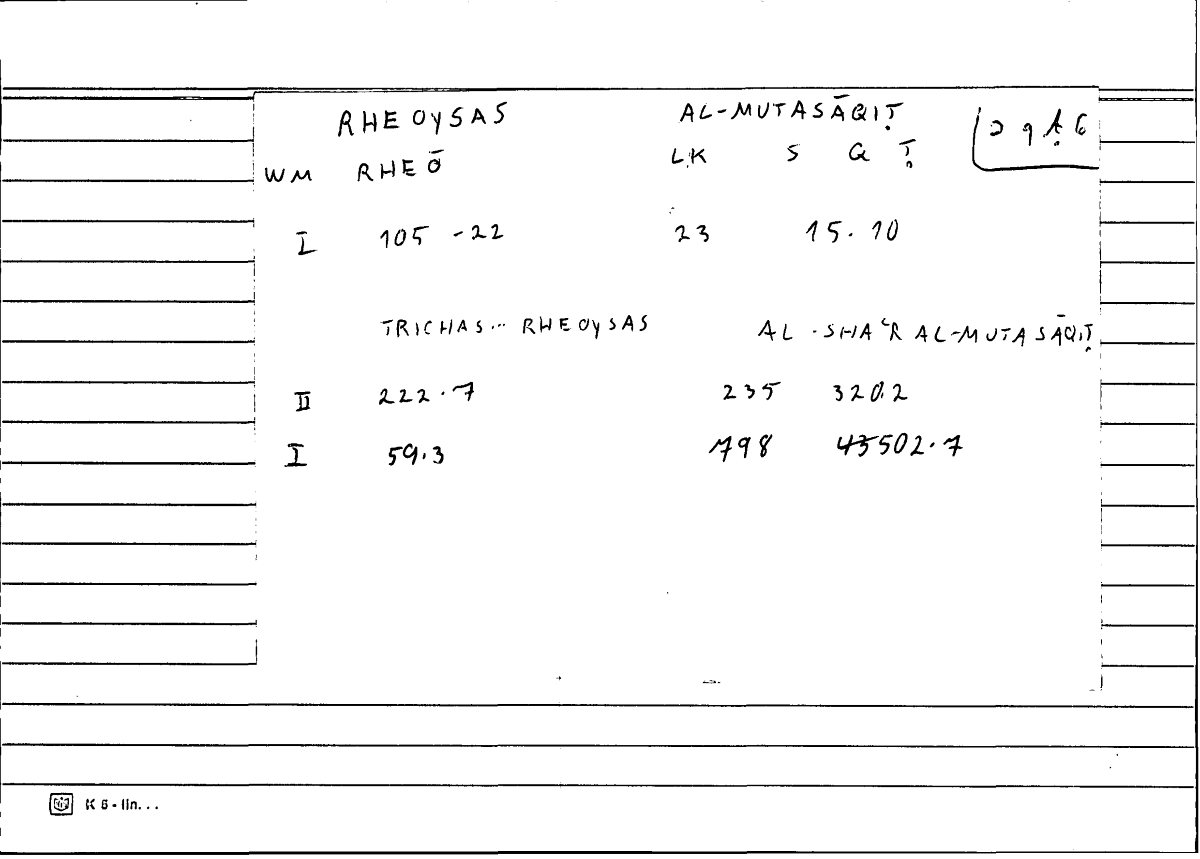 RHEOYSAS AL-MUTASĀQIṬ
WM RHEŌ LK S Q Ṭ
I 105 -22 23 15.10
TRICHAS... RHEOYSAS AL-SHAʿR AL-MUTASĀQIṬ
II 222.7 235 320.2
I 59.3 798 502.7
K 5 - lin...